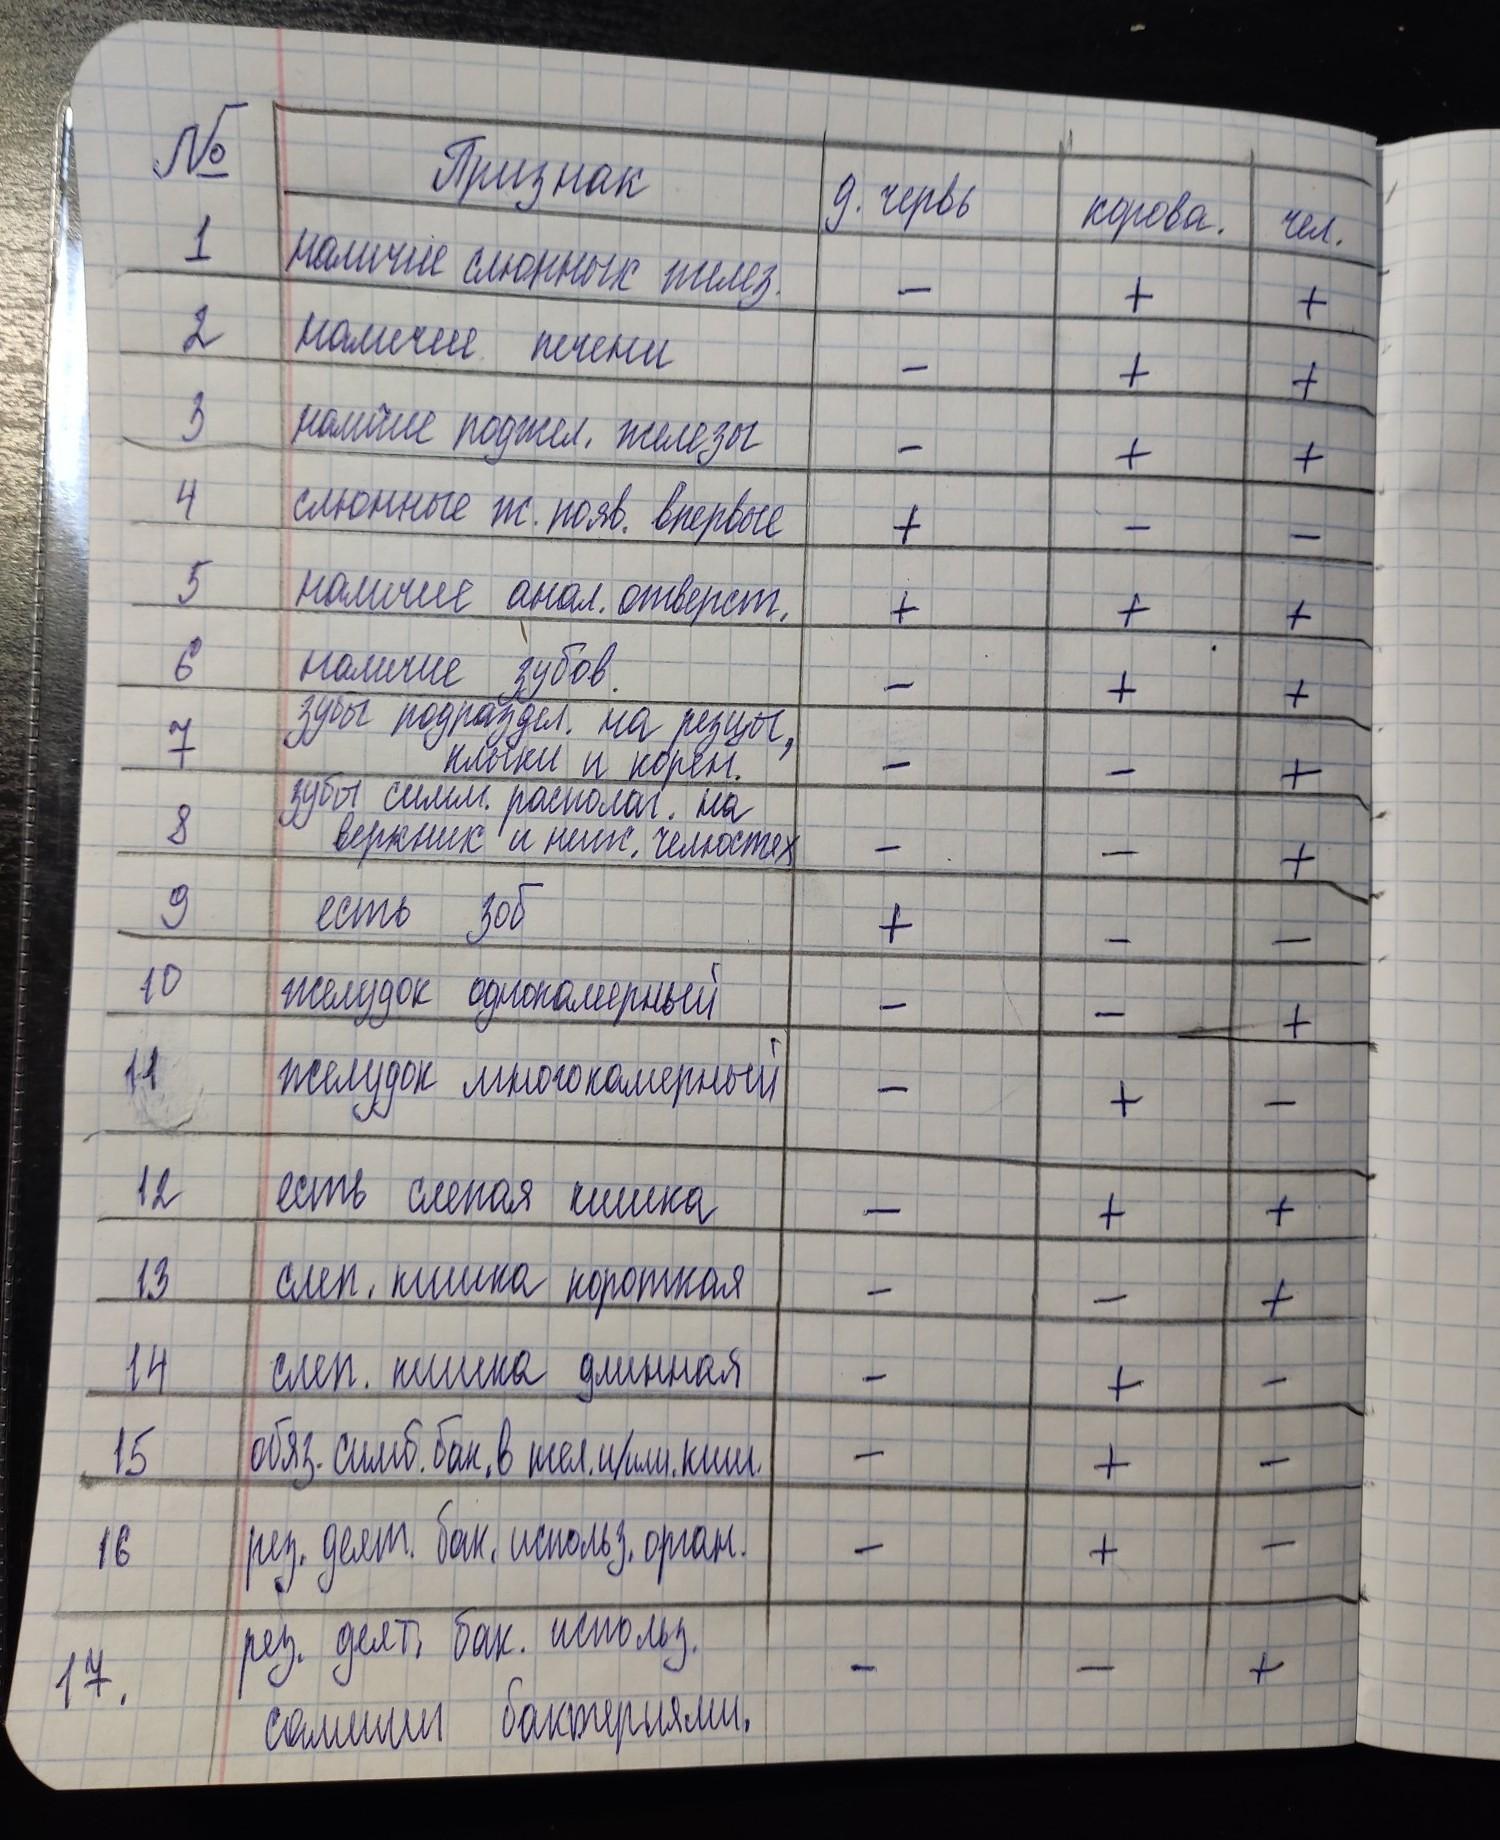 № Признак д. червь корова. чел.
1 наличие слюнных желез. - + +
2 наличие печени - + +
3 наличие поджел. железы - + +
4 слюнные ж. появ. впервые + - -
5 наличие анал. отверст. + + +
6 наличие зубов. - + +
7 зубы подраздел. на резцы,
клыки и корен. - - +
8 зубы симм. располаг. на
верхних и ниж. челюстях - - +
9 есть зоб + - -
10 желудок однокамерный - - +
11 желудок многокамерный - + -
12 есть слепая кишка - + +
13 слеп. кишка короткая - - +
14 слеп. кишка длинная - + -
15 обяз. симб. бак. в жел. и/или киш. - + -
16 рез. деят. бак. использ. орган. - + -
17. рез. деят. бак. использ. - - +
самими бактериями.